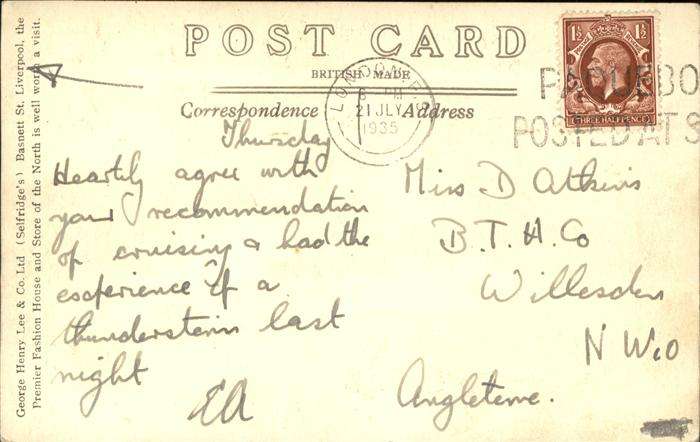 POST CARD
BRITISH MADE
Correspondence
Address
1½ 1½
POSTAGE REVENUE
THREE HALFPENCE
LONDON
PM
21 JLY
1935
PAQUEBO
POSTED AT S
Thursday
Heartily agree with
your recommendation
of cruising & had the
experience of a
thunderstorm last
night
EA
Miss D Atkins
B.T.H. Co
Willesden
N W10
Angleterre.
George Henry Lee & Co. Ltd (Selfridge's) Basnett St. Liverpool, the
Premier Fashion House and Store of the North is well worth a visit.